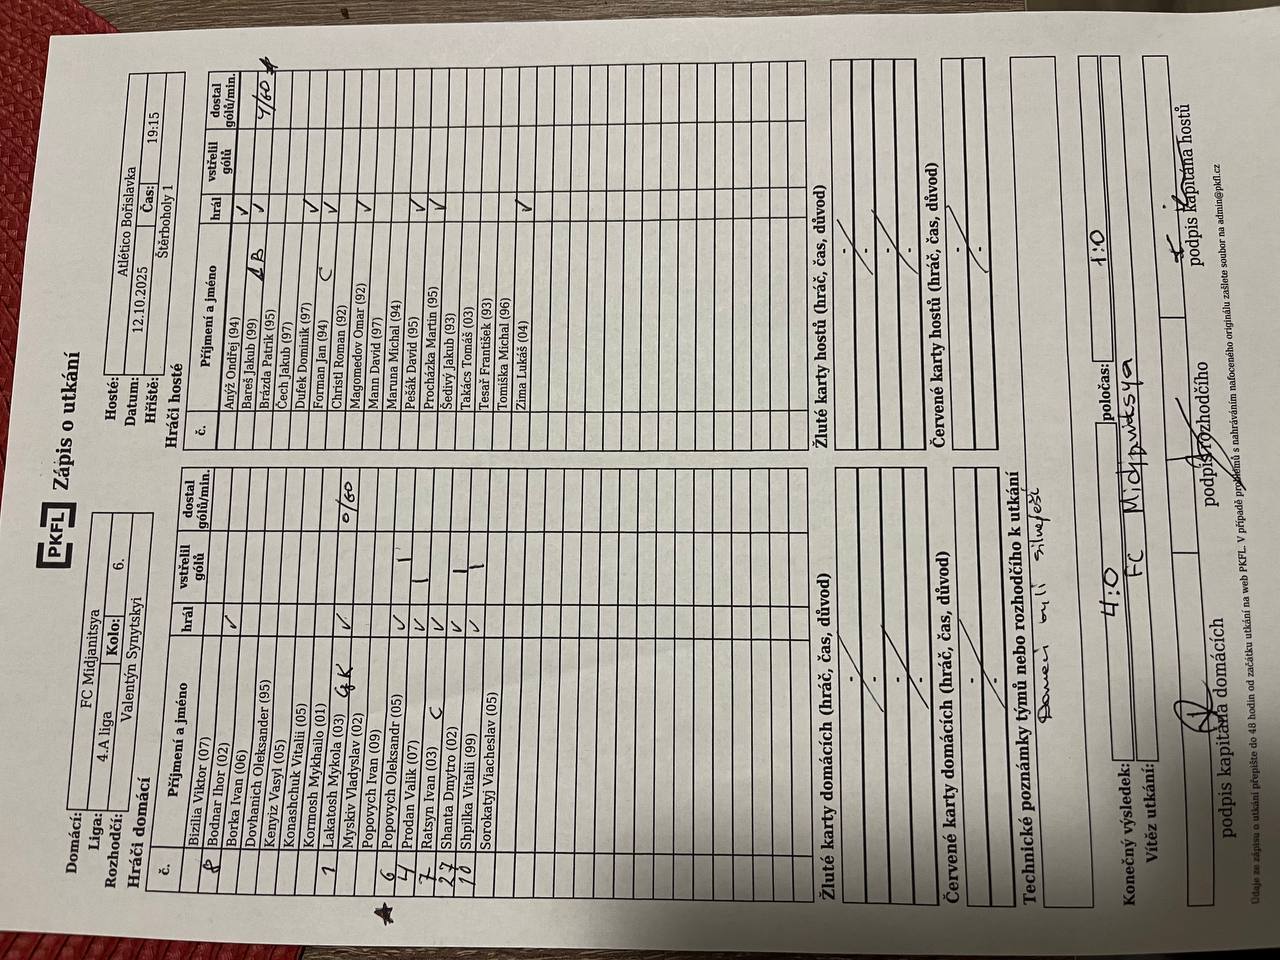 PKFL Zápis o utkání
Domácí: FC Midjanitsya
Liga: 4.A liga Kolo: 6.
Rozhodčí: Valentýn Synytskyi
Hosté: Atlético Bořislavka
Datum: 12.10.2025 Čas: 19:15
Hřiště: Štěrboholy 1
Hráči domácí
č. Příjmení a jméno hrál vstřelil gólů dostal gólů/min.
Bizilia Viktor (07)
8 Bodnar Ihor (02) ✓
Borka Ivan (06)
Dovhanich Oleksander (95)
Kenyiz Vasyl (05)
Konashchuk Vitalii (05)
Kormosh Mykhailo (01)
1 Lakatosh Mykola (03) GK ✓ 0/60
Myskiv Vladyslav (02)
Popovych Ivan (09)
6 Popovych Oleksandr (05) ✓ 1
4 Prodan Valik (07) ✓ 1
7 Ratsyn Ivan (03) C ✓
27 Shanta Dmytro (02) ✓ 1
10 Shpilka Vitalii (99) ✓ 1
Sorokatyj Viacheslav (05)
Hráči hosté
č. Příjmení a jméno hrál vstřelil gólů dostal gólů/min.
Anýž Ondřej (94) ✓
Bareš Jakub (99) ✓
Brázda Patrik (95) 4/60
Čech Jakub (97)
Dufek Dominik (97) ✓
Forman Jan (94) C ✓
Christl Roman (92)
Magomedov Omar (92) ✓
Mann David (97)
Maruna Michal (94)
Pešák David (95) ✓
Procházka Martin (95) ✓
Šedivý Jakub (93)
Takács Tomáš (03)
Tesař František (93)
Tomiška Michal (96)
Zima Lukáš (04) ✓
Žluté karty domácích (hráč, čas, důvod)
-
-
Červené karty domácích (hráč, čas, důvod)
-
Žluté karty hostů (hráč, čas, důvod)
-
-
Červené karty hostů (hráč, čas, důvod)
-
-
Technické poznámky týmů nebo rozhodčího k utkání
Domací byli silnejší
Konečný výsledek: 4:0 poločas: 1:0
Vítěz utkání: FC Midjanitsya
podpis kapitána domácích podpis rozhodčího podpis kapitána hostů
Údaje ze zápisu o utkání přepište do 48 hodin od začátku utkání na web PKFL. V případě problémů s nahráváním nafoceného originálu zašlete soubor na admin@pkfl.cz